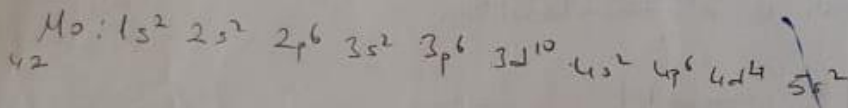 ₄₂Mo: 1s² 2s² 2p⁶ 3s² 3p⁶ 3d¹⁰ 4s² 4p⁶ 4d⁴ 5s²